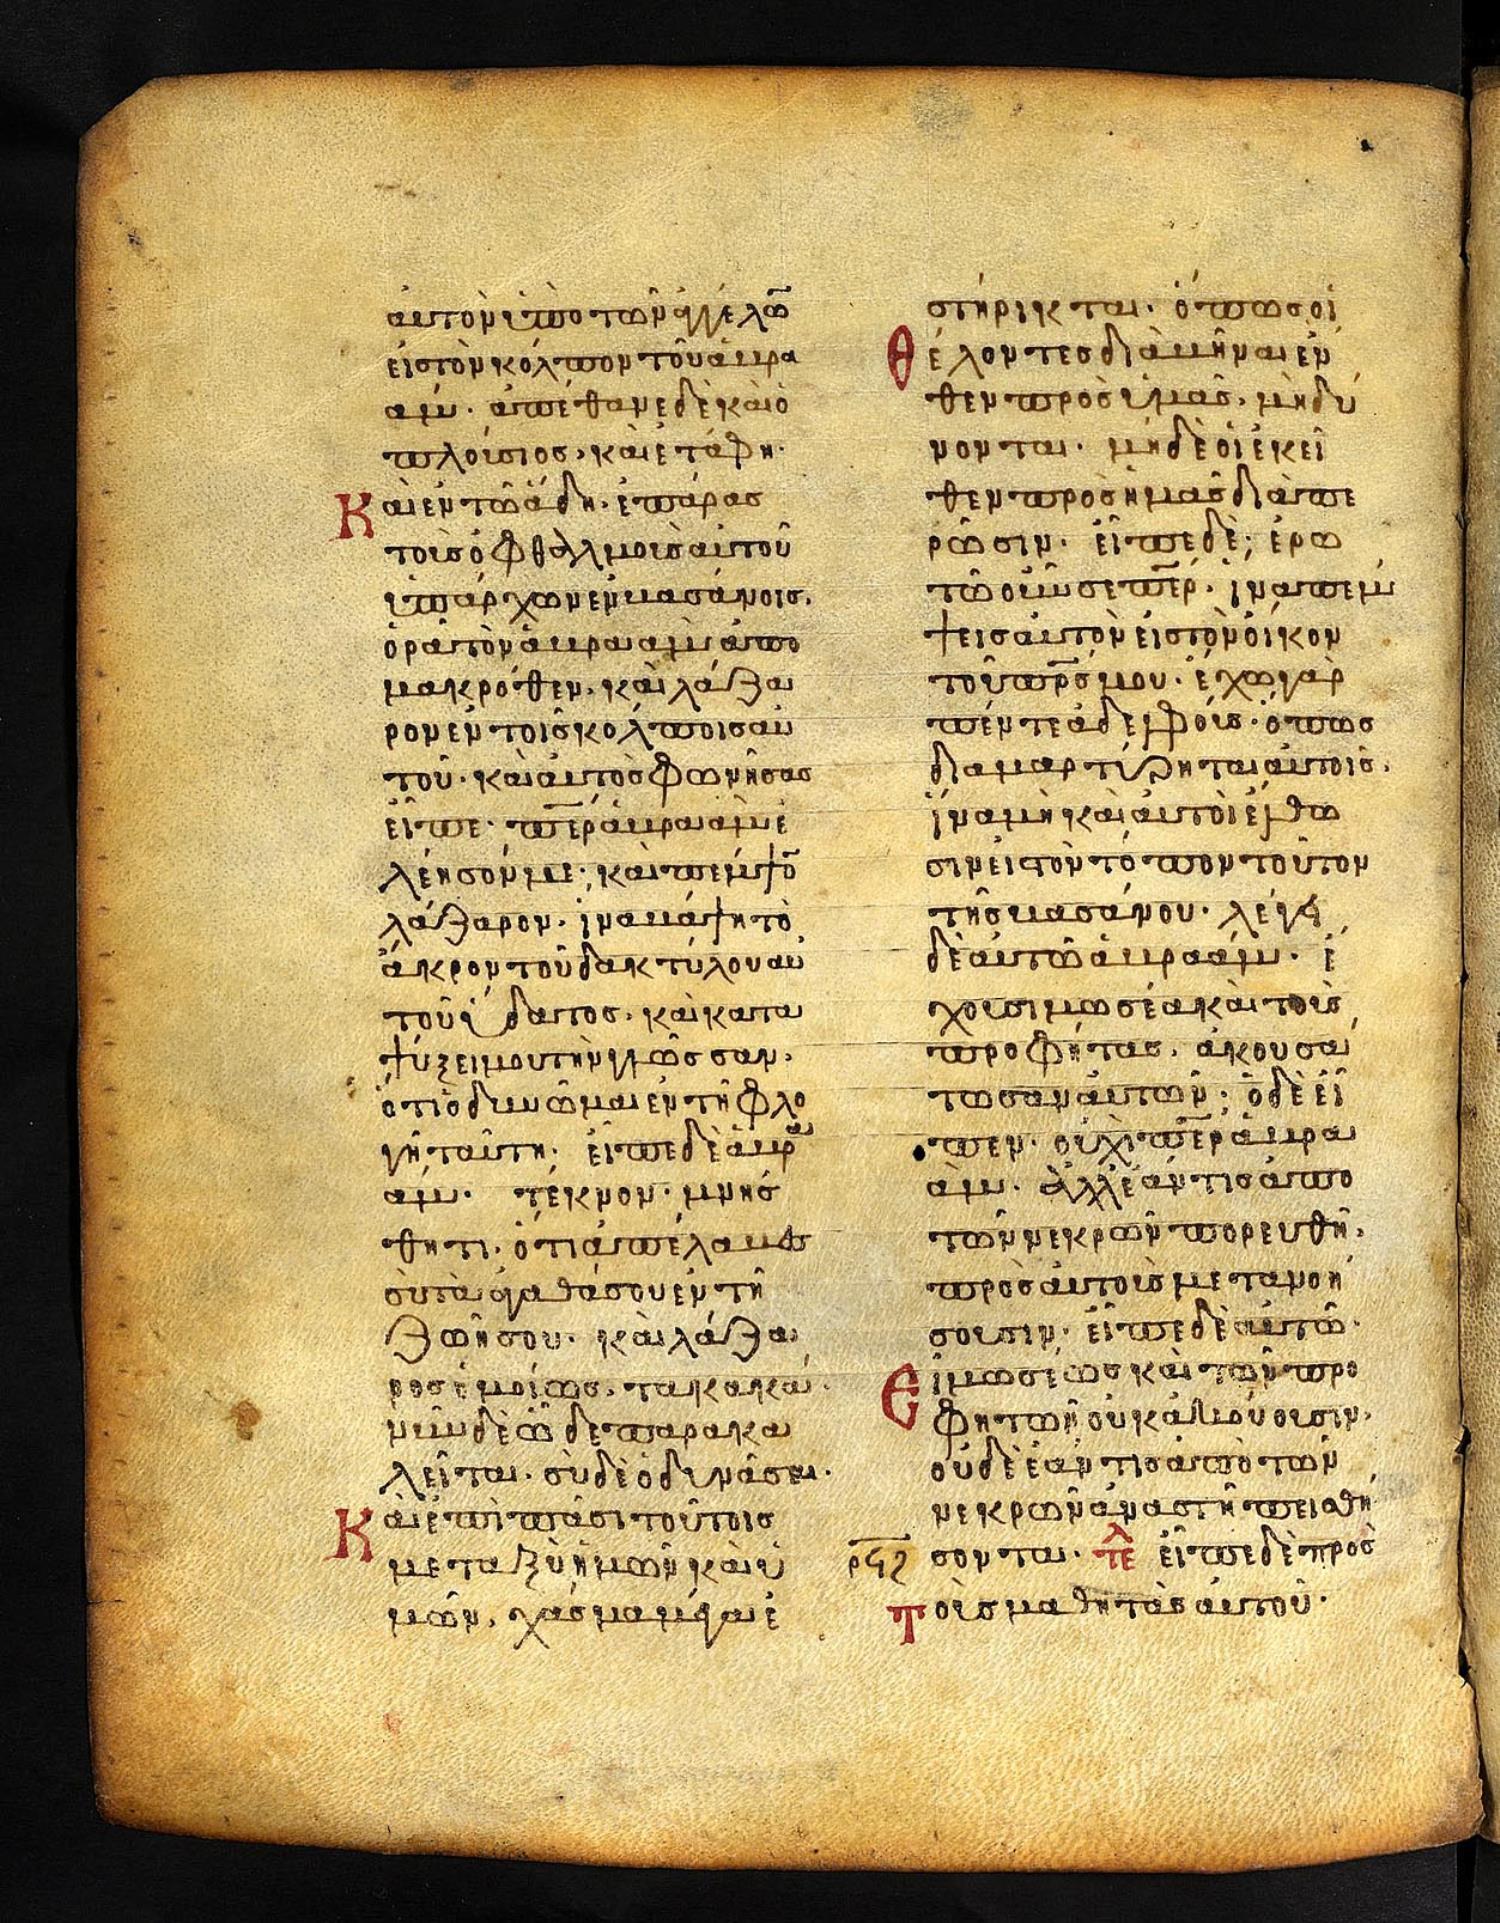 αυτὸν ὑπὸ τῶν ἀγγέλω̅
εἰς τὸν κόλπον τοῦ ἁβρα
άμ· ἀπέθανε δὲ καὶ ὁ
πλούσιος, καὶ ἐτάφη·
Καὶ ἐν τῶ ἅδη, ἐπάρας
τοὺς ὀφθαλμοὺς αὐτοῦ
ὑπάρχων ἐν βασάνοις,
ὁρᾶ τὸν ἁβρααὰμ ἀπο
μακρόθεν, καὶ λάζα
ρον ἐν τοῖς κόλποις αὐ
τοῦ· καὶ αὐτὸς φωνήσας
εἶπε· π̅ε̅ρ ἁβραὰμ ἐ
λέησόν με· καὶ πέμψο̅
λάζαρον, ἵνα βάψη τὸ
ἄκρον τοῦ δακτύλου αὐ
τοῦ ὕδατος, καὶ κατα
ψύξει μου τὴν γλῶσσαν,
ὅτι ὀδυνῶμαι ἐν τῆ φλο
γὶ ταύτη· εἶπε δὲ ἁβρα
άμ· τέκνον· μνήσ
θητι, ὅτι ἀπέλαβες
σὺ τὰ ἀγαθά σου ἐν τῆ
ζωῆ σου· καὶ λάζα
ρος ὁμοίως, τὰ κακά·
νῦν δὲ ὧδε παρακα
λεῖται· σὺ δὲ ὀδυνᾶσαι·
Καὶ ἐπὶ πᾶσι τούτοις
μεταξὺ ἡμῶν καὶ ὑ
μῶν, χάσμα μέγα ἐ
στήρικται· ὅπως οἱ
Θέλοντες διαβῆναι ἔν
θεν πρὸς ὑμᾶς, μὴ δύ
νονται· μηδὲ οἱ ἐκεῖ
θεν πρὸς ἡμᾶς διαπε
ρῶσιν· εἶπε δὲ; ἐρω
τῶ οὖν σε π̅ε̅ρ, ἵνα πέμ
ψεις αὐτὸν εἰς τὸν οἶκον
τοῦ π̅ρ̅ς μου· ἔχω γὰρ
πέντε ἀδελφούς· ὅπως
διαμαρτύρηται αὐτοῖς,
ἵνα μὴ καὶ αὐτοὶ ἔλθω
σιν εἰς τὸν τόπον τοῦτον
τῆς βασάνου· λέγει
δὲ αὐτῶ ἁβραάμ· ἔ
χουσι μωσέα καὶ τοὺς
προφήτας, ἀκουσά
τωσαν αὐτῶν· ὁ δὲ εἶ
πεν· οὐχὶ π̅ε̅ρ ἁβρα
άμ· ἀλλ' ἐάν τις ἀπὸ
τῶν νεκρῶν πορευθῆ,
πρὸς αὐτοὺς μετανοή
σουσιν· εἶπε δὲ αὐτῶ·
Εἰ μωσέως καὶ τῶν προ
φητῶν οὐκ ἀκούουσιν,
οὐδὲ ἐάν τις ἀπὸ τῶν
νεκρῶν ἀναστῆ πεισθή
ρϟϛ σονται· τε̅λ εἶπε δὲ πρὸς
Τοὺς μαθητὰς αὐτοῦ·